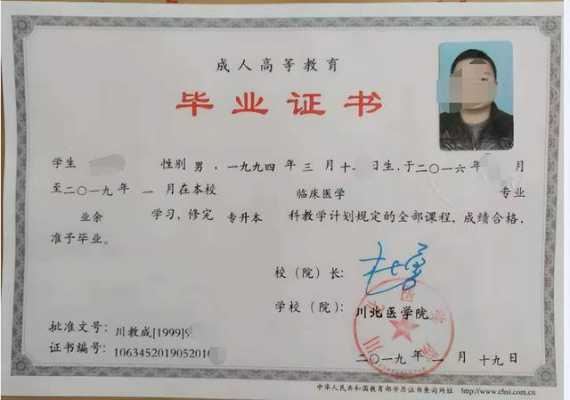 成人高等教育
毕业证书
学生 性别 男，一九九四年 三 月 十 日生，于二〇一六年 月
至二〇一九年 一 月在本校 临床医学 专业
业余 学习，修完 专升本 科教学计划规定的全部课程，成绩合格，
准予毕业。
校（院）长：
学校（院）： 川北医学院
批准文号：川教成[1999]
证书编号：1063452019052010
二〇一九年 一 月 十九日
中华人民共和国教育部学历证书查询网址 http://www.chsi.com.cn